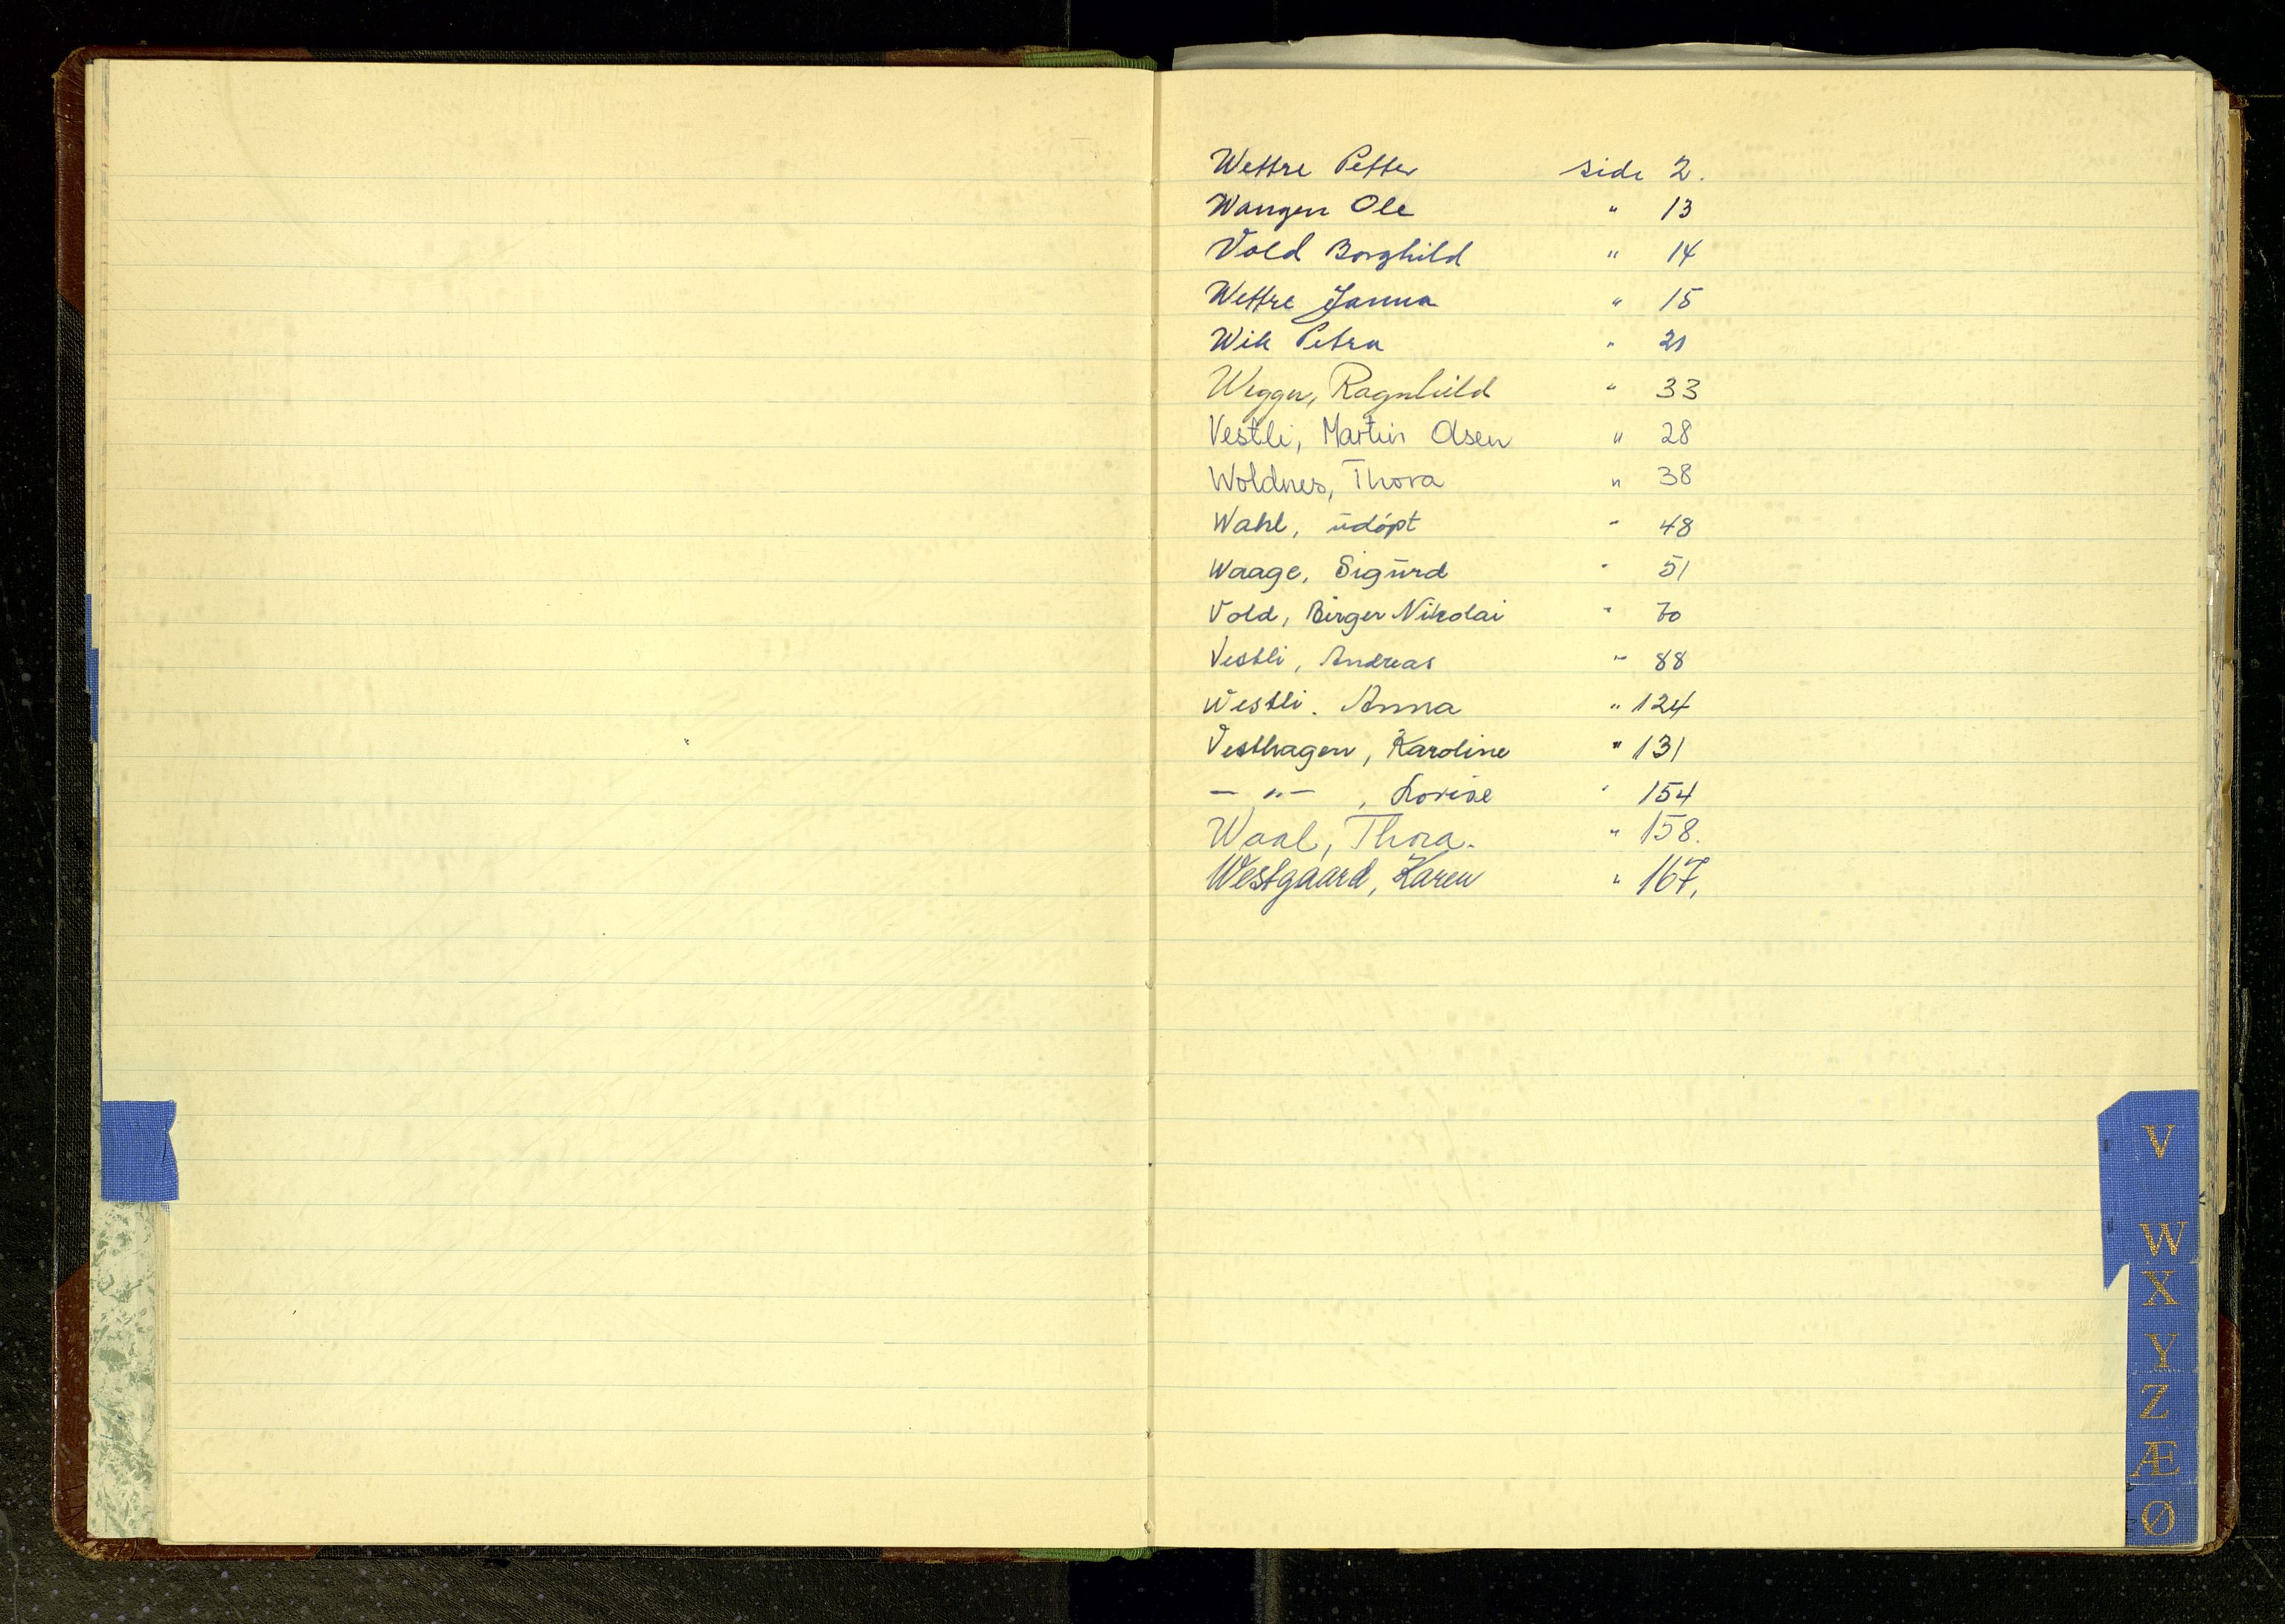 Wettre Petter side 2.
Wangen Ole " 13
Vold Borghild " 14
Wettre Janna " 15
Wik Petra " 21
Wegger, Ragnhild " 33
Vestli, Martin Olsen " 28
Woldnes, Thora " 38
Wahl, udøpt " 48
Waage, Sigurd " 51
Vold, Birger Nikolai " 70
Vestli, Andreas " 88
Westli. Anna " 124
Vesthagen, Karoline " 131
— " — , Lovise " 154
Waal, Thora. " 158.
Westgaard, Karen " 167.
V
W
X
Y
Z
Æ
Ø